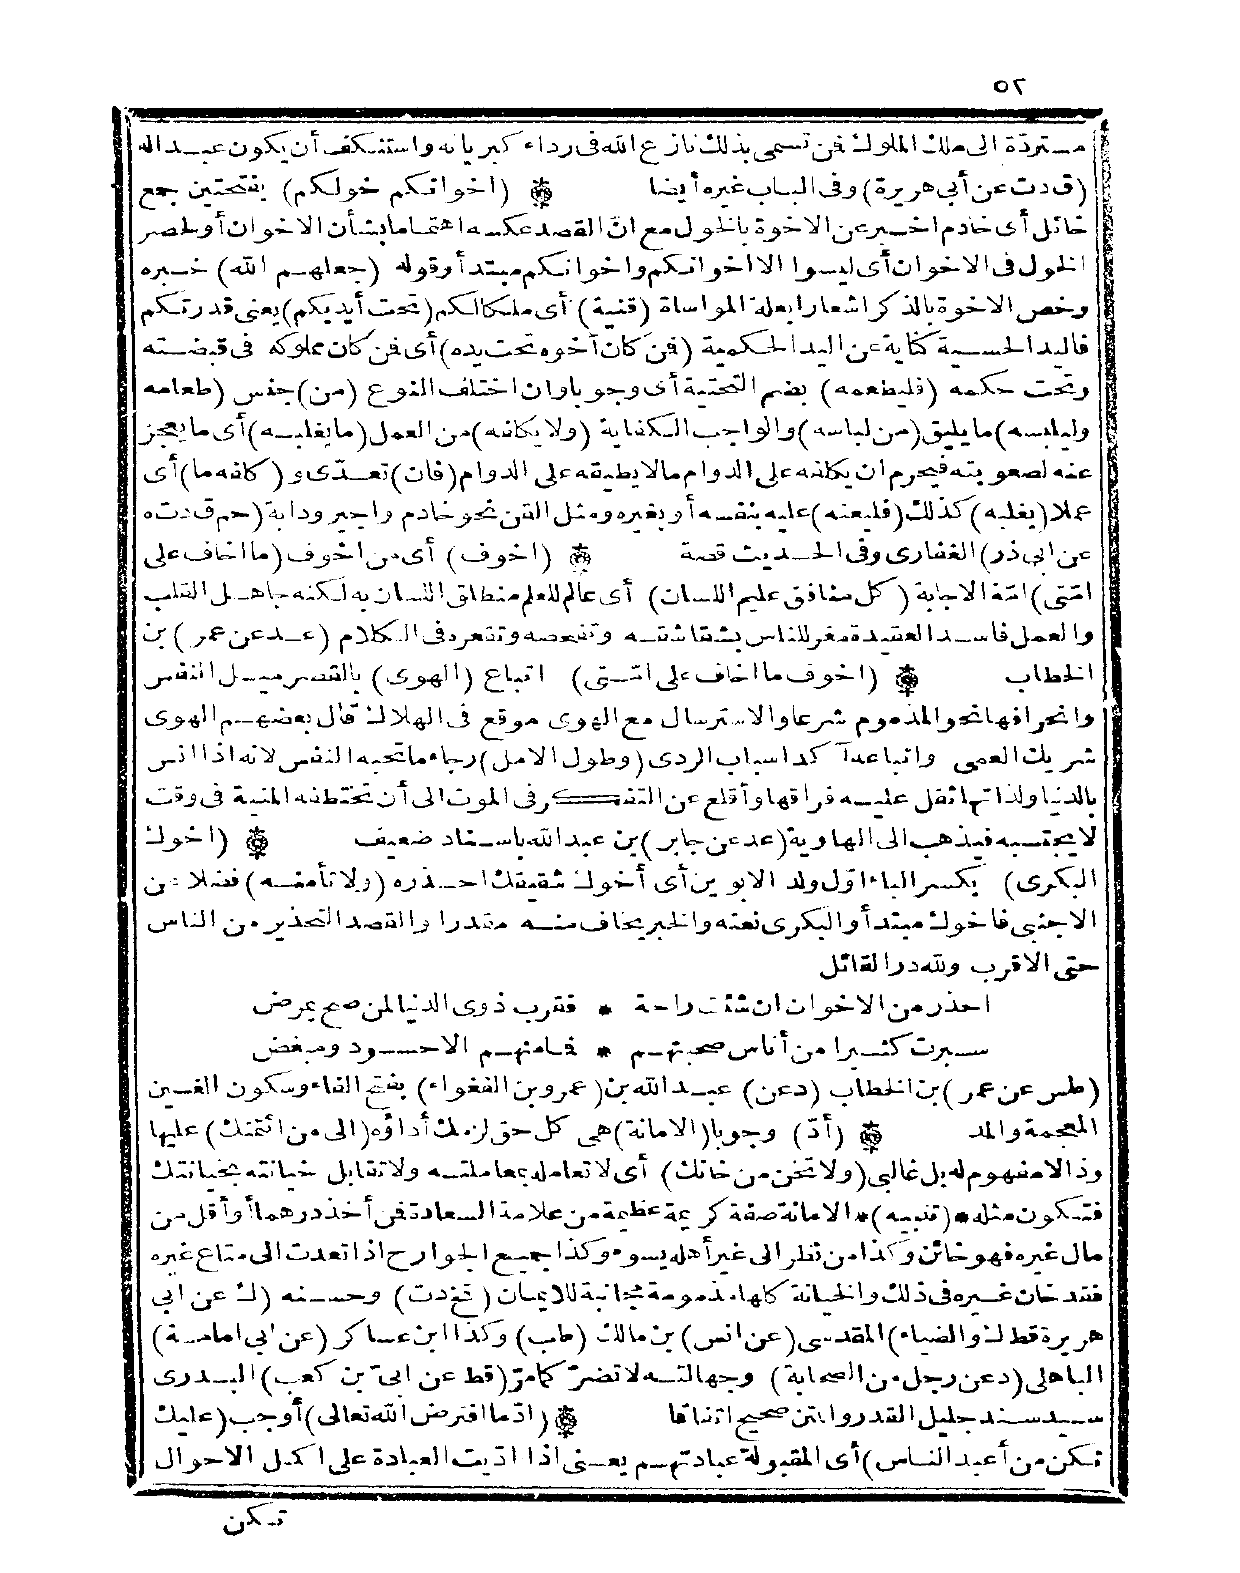 ٥٢
مستردّة الى ملك الملوك فمن تسمى بذلك نازع الله فى رداء كبريائه واستنكف أن يكون عبد اله
(ق د ت عن أبى هريرة) وفى الباب غيره أيضا (اخوانكم خولكم) بفتحتين جمع
خائل أى خادم اخبر عن الاخوة بالخول مع ان القصد عكسه اهتماما بشأن الاخوان أو لحصر
الخول فى الاخوان أى ليسوا الا اخوانكم واخوانكم مبتدأ وقوله (جعلهم الله) خبره
وخص الاخوة بالذكر اشعارا بعلة المواساة (قنية) أى ملكا لكم (تحت أيديكم) يعنى قدرتكم
فاليد الحسية كناية عن اليد الحكمية (فمن كان أخوه تحت يده) أى فمن كان مملوكه فى قبضته
وتحت حكمه (فليطعمه) بضم التحتية أى وجوبا وان اختلف النوع (من) جنس (طعامه
وليلبسه) ما يليق (من لباسه) والواجب الكفاية (ولا يكلفه) من العمل (ما يغلبه) أى ما يعجز
عنه لصعوبته فيحرم ان يكلفه على الدوام ما لا يطيقه على الدوام (فان) تعدّى و (كلفه ما) أى
عملا (يغلبه) كذلك (فليعنه) عليه بنفسه أو بغيره ومثل القن نحو خادم واجير ودابة (حم ق د ت ه
عن ابى ذر) الغفارى وفى الحديث قصة (اخوف) أى من اخوف (ما اخاف على
امّتى) امّة الاجابة (كل منافق عليم اللسان) أى عالم للعلم منطلق اللسان به لكنه جاهل القلب
والعمل فاسد العقيدة مغر للناس بشقاشقه وتفحصه وتقعره فى الكلام (عد عن عمر) بن
الخطاب (اخوف ما اخاف على امّتى) اتباع (الهوى) بالقصر ميل النفس
وانحرافها نحو المذموم شرعا والاسترسال مع الهوى موقع فى الهلاك قال بعضهم الهوى
شريك العمى واتباعه آكد اسباب الردى (وطول الامل) رجاء ما تحبه النفس لانه اذا انس
بالدنيا ولذاتها ثقل عليه فراقها وأقلع عن التفكر فى الموت الى أن تختطفه المنية فى وقت
لا يحتسبه فيذهب الى الهاوية (عد عن جابر) بن عبد الله باسناد ضعيف (اخوك
البكرى) بكسر الباء اوّل ولد الابوين أى أخوك شقيقك احذره (ولا تأمنه) فضلا عن
الاجنبى فاخوك مبتدأ والبكرى نعته والخبر يخاف منه مقدرا والقصد التحذير من الناس
حتى الاقرب ولله در القائل
احذر من الاخوان ان شئت راحة * فقرب ذوى الدنيا لمن صح يمرض
سبرت كثيرا من أناس صحبتهم * فما منهم الا حسود ومبغض
(طس عن عمر) بن الخطاب (د عن) عبد الله بن (عمرو بن الفغواء) بفتح الفاء وسكون الغين
المعجمة والمد (أدّ) وجوبا (الامانة) هى كل حق لزمك أداؤه (الى من ائتمنك) عليها
وذا لا مفهوم له بل غالبى (ولا تخن من خانك) أى لا تعامله بمعاملته ولا تقابل خيانته بخيانتك
فتكون مثله * (تنبيه) * الامانة صفة كريمة عظيمة من علامة السعادة فمن أخذ درهما أو أقل من
مال غيره فهو خائن وكذا من نظر الى غير أهله بسوء وكذا جميع الجوارح اذا تعدت الى متاع غيره
فقد خان غيره فى ذلك والخيانة كلها مذمومة مجانبة للايمان (تخ د ت) وحسنه (ك عن ابى
هريرة قط ك والضياء) المقدسى (عن انس) بن مالك (طب) وكذا ابن عساكر (عن ابى امامة)
الباهلى (د عن رجل من الصحابة) وجهالته لا تضرّ كما مرّ (قط عن ابىّ بن كعب) البدرى
سيد سند جليل القدر والمتن صحيح اتفاقا (ادّ ما افترض الله تعالى) أوجب (عليك
تكن من أعبد الناس) أى المقبولة عبادتهم يعنى اذا ادّيت العبادة على اكمل الاحوال
تكن